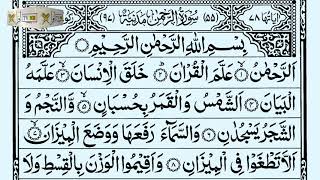 اٰیَاتُهَا ٧٨ (٥٥) سُوْرَةُ الرَّحْمٰنِ مَدَنِيَّةٌ (٩٧)
بِسْمِ اللّٰهِ الرَّحْمٰنِ الرَّحِيْمِ
اَلرَّحْمٰنُ ۙ﴿١﴾ عَلَّمَ الْقُرْاٰنَ ؕ﴿٢﴾ خَلَقَ الْاِنْسَانَ ۙ﴿٣﴾ عَلَّمَهُ
الْبَيَانَ ﴿٤﴾ اَلشَّمْسُ وَ الْقَمَرُ بِحُسْبَانٍ ۪﴿٥﴾ وَّ النَّجْمُ وَ
الشَّجَرُ يَسْجُدٰنِ ﴿٦﴾ وَ السَّمَآءَ رَفَعَهَا وَ وَضَعَ الْمِيْزَانَ ۙ﴿٧﴾
اَلَّا تَطْغَوْا فِي الْمِيْزَانِ ﴿٨﴾ وَ اَقِيْمُوا الْوَزْنَ بِالْقِسْطِ وَ لَا